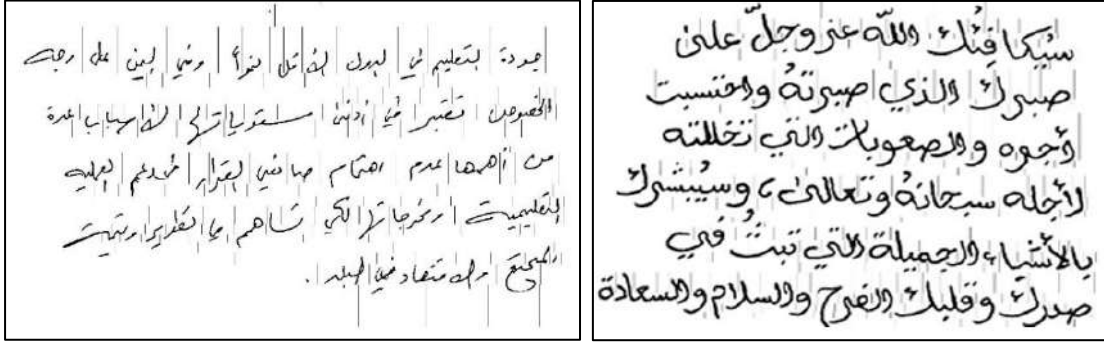 جودة التعليم في الدول الأقل نمواً وفي اليمن على وجه
الخصوص تعتبر في أدنى مستوياتها لأسباب عدة
من أهمها عدم اهتمام صانعي القرار في دعم العمليه
التعليمية ومخرجاتها لكي تساهم في تطوير وتنمية
المجتمع والاقتصاد في البلد .
سيُكافِئك اللّه عز وجلّ على
صبرك الذي صبرتهُ واحتسبت
أجره والصعوبات التي تخللته
لأجله سبحانهُ وتعالى، وسيُبشرك
بالأشياء الجميلة التي تبثُ في
صدرك وقلبك الفرح والسلام والسعادة